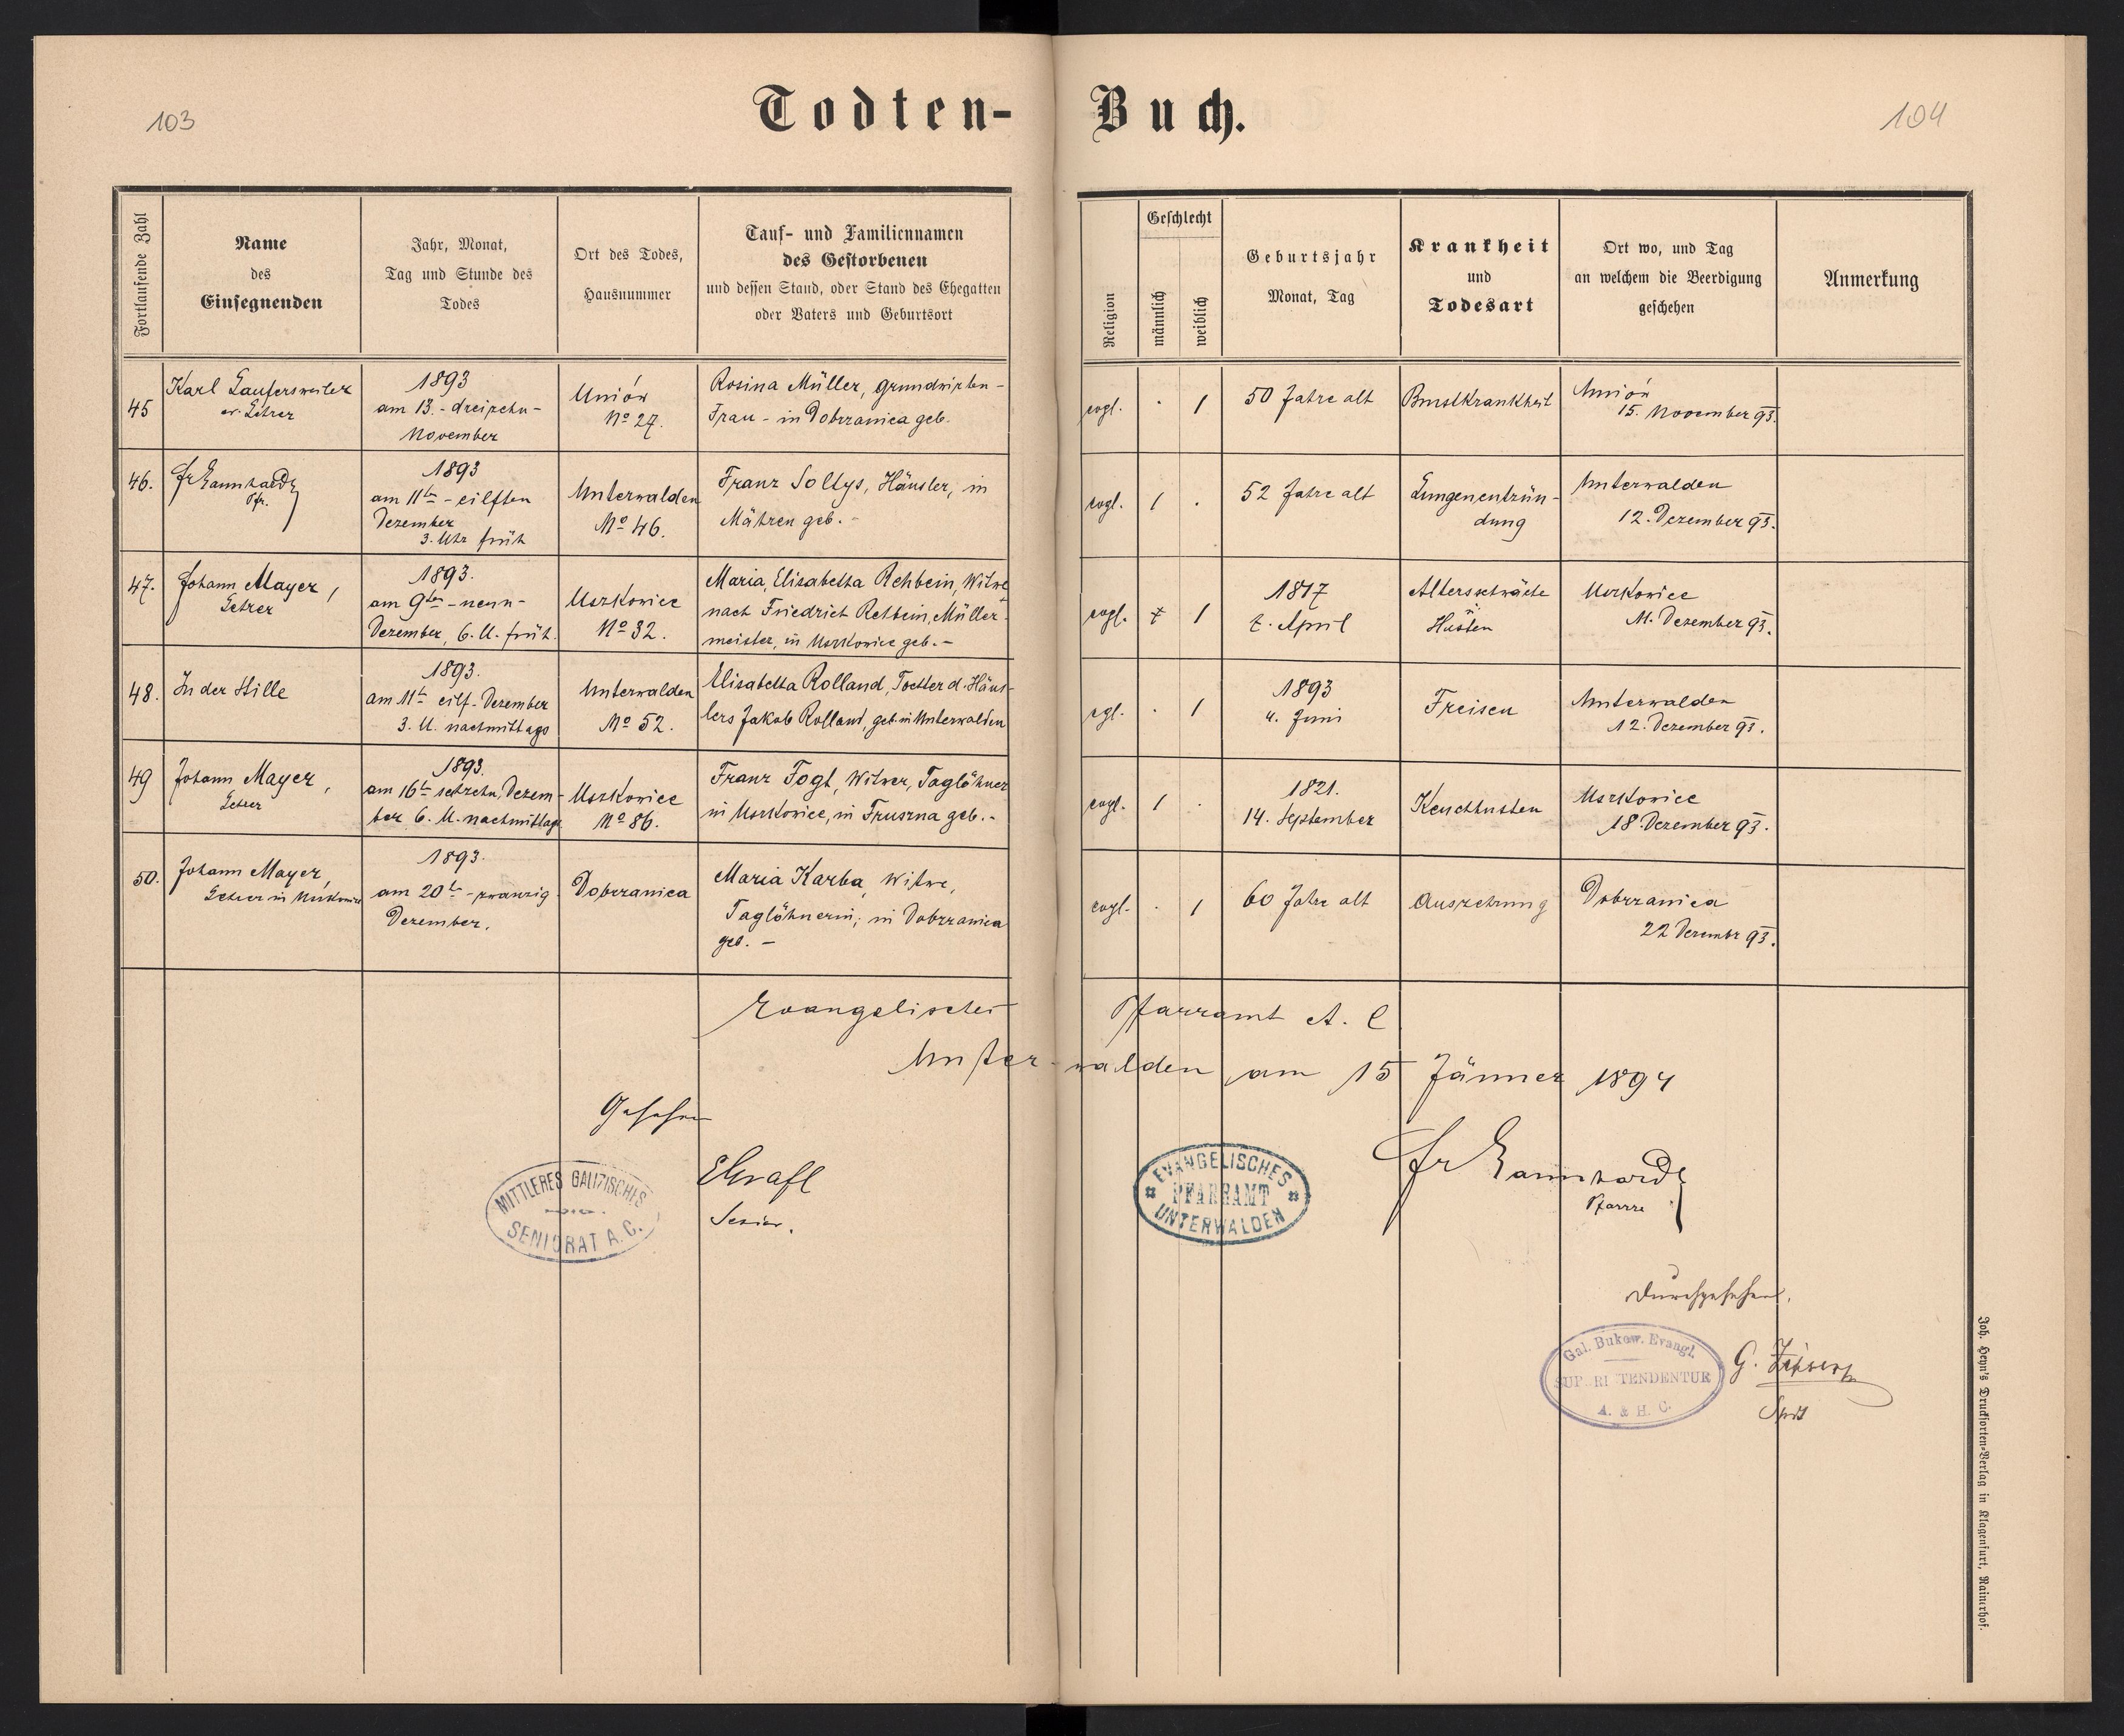 103
Todten-
Buch.
104
Fortlaufende Zahl
Name
des
Einsegnenden
Jahr, Monat,
Tag und Stunde des
Todes
Ort des Todes,
Hausnummer
Tauf- und Familiennamen
des Gestorbenen
und dessen Stand, oder Stand des Ehegatten
oder Vaters und Geburtsort
Religion
Geschlecht
männlich
weiblich
Geburtsjahr
Monat, Tag
Krankheit
und
Todesart
Ort wo, und Tag
an welchem die Beerdigung
geschehen
Anmerkung
45
Karl Laufersweiler
ev. Lehrer
1893
am 13. - dreizehn -
November
Unión
No 27.
Rosina Müller, grundwirten -
Frau - in Dobrzanica geb.
evgl. . 1
50 Jahre alt
Brustkrankheit
Unión
15. November 93.
46.
Pfr.
1893
am 11ten - eilften
Dezember
3. Uhr früh
Unterwalden
No 46.
Franz Soltys, Häusler, in
Mähren geb. -
evgl. 1 .
52 Jahre alt
Lungenentzün-
dung
Unterwalden
12. Dezember 93.
47.
Johann Mayer,
Lehrer
1893.
am 9ten - neun -
Dezember, 6. U. früh.
Uszkowice
No 32.
Maria Elisabetha Rehbein, Witwe
nach Friedrich Rehbein, Müller-
meister, in Uszkowice geb. -
evgl. 1
1817
7. April
Altersschwäche
Husten
Uszkowice
11. Dezember 93.
48.
In der Stille
1893.
am 11t eilf. Dezember
3. U. nachmittags
Unterwalden
No 52.
Elisabetha Rolland, Tochter d. Häus-
lers Jakob Rolland, geb. in Unterwalden
egl. . 1
1893
4. Juni
Freisen
Unterwalden
12. Dezember 93.
49
Johann Mayer,
Lehrer
1893.
am 16t sechzehn, Dezem-
ber 6. U. nachmittags
Uszkowice
No 86.
Franz Fogt, Witwer, Taglöhner
in Uszkowice, in Fruszna geb. -
evgl. 1 .
1821.
14. September
Keuchhusten
Uszkowice
18. Dezember 93.
50.
Johann Mayer,
Lehrer in Uszkowice
1893.
am 20t - zwanzig
Dezember.
Dobrzanica
Maria Karba, Witwe,
Taglöhnerin, in Dobrzanica
geb. -
evgl. . 1
60 Jahre alt
Auszehrung
Dobrzanica
22 Dezembr 93.
Evangelisches Pfarramt A. C
Unter-walden am 15 Jänner 1894
Gesehen
MITTLERES GALIZISCHES
SENIORAT A. C.
Senior.
EVANGELISCHES
PFARRAMT
UNTERWALDEN
Pfarrer
Durchgesehen.
Gal. Bukow. Evangl.
SUPERINTENDENTUR
A. & H. C.
Joh. Heyn's Drucksorten-Verlag in Klagenfurt, Rainerhof.